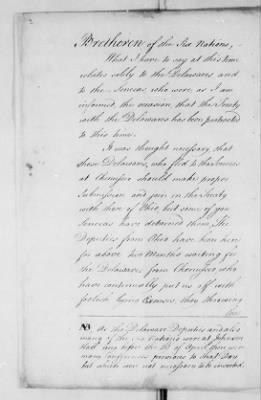 Bretheren of the Six Nations,
What I have to say at this time
relates solely to the Delawares and
to the Senecas who were as I am
informed, the occasion that the Treaty
with the Delawares has been protracted
to this time.
It was thought necessary that
those Delawares, who fled to the Senecas
at Chenissio should make proper
Submission and join in the Treaty
with those of Ohio, but some of you
Senecas have detained them, The
Deputies from Ohio have been here
for above two Months waiting for
the Delawares from Chenissio, who
have continually put us off with
foolish Excuses, thus throwing
NB As the Delaware Deputies and also
many of the Six Nations were at Johnson
Hall long before the of April there were
many Conferences previous to that Date
but which are not necessary to be inserted.